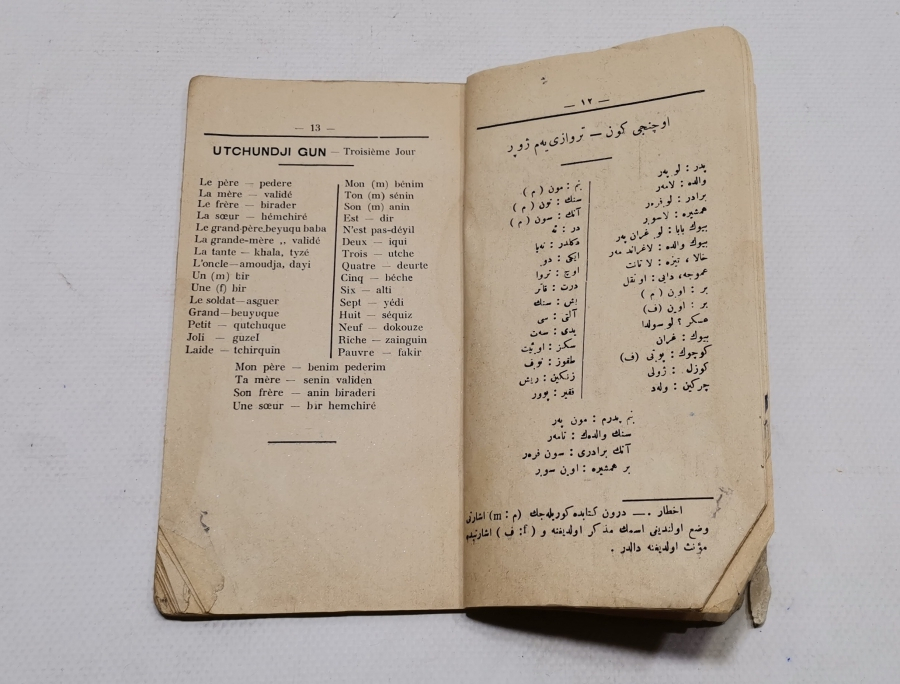 — 13 —
UTCHUNDJI GUN — Troisième Jour
Le père — pedere
La mère — validé
Le frère — birader
La sœur — hémchiré
Le grand-père, beyuqu baba
La grande-mère ,, validé
La tante — khala, tyzé
L'oncle — amoudja, dayi
Un (m) bir
Une (f) bir
Le soldat — asguer
Grand — beuyuque
Petit — qutchuque
Joli — guzel
Laide — tchirquin
Mon (m) bénim
Ton (m) sénin
Son (m) anin
Est — dir
N'est pas - déyil
Deux — iqui
Trois — utche
Quatre — deurte
Cinq — béche
Six — alti
Sept — yédi
Huit — séquiz
Neuf — dokouze
Riche — zainguin
Pauvre — fakir
Mon père — benim pederim
Ta mère — senin validen
Son frère — anin biraderi
Une sœur — bir hemchiré
— ١٢ —
اوچنجی كون — تروازی یەم ژور
پدر : لو پەر
والده : لامەر
برادر : لوفرەر
همشیره : لاسور
بیوك بابا : لو غران پەر
بیوك والده : لاغراند مەر
خالا ، تیزه : لا تانت
عموجه، دایی : اونقل
بر : اون ( م )
بر : اون (ف)
عسكر ؟ لو سولدا
بیوك : غران
كوچوك : پوتی (ف)
كوزل : ژولی
چركین : ولەد
بنم : مون ( م )
سنك : تون ( م )
آنك : سون ( م )
در : ئه
دكلدر : نەپا
ایكی : دو
اوچ : تروا
درت : قاتر
بش : سنك
آلتی : سی
یدی : سەت
سكز : اوئیت
طقوز : نوف
زنكین : ریش
فقیر : پوور
بنم پدرم : مون پەر
سنك والدەك : تامەر
آنك برادری : سون فرەر
بر همشیره : اون سور
اخطار .— درون كتابده كوریله‌جك (م : m) اشارتی
وضع اولندیغی اسمك مذكر اولدیغنه و ( f: ف ) اشارتیده
مؤنث اولدیغنه دالدر .